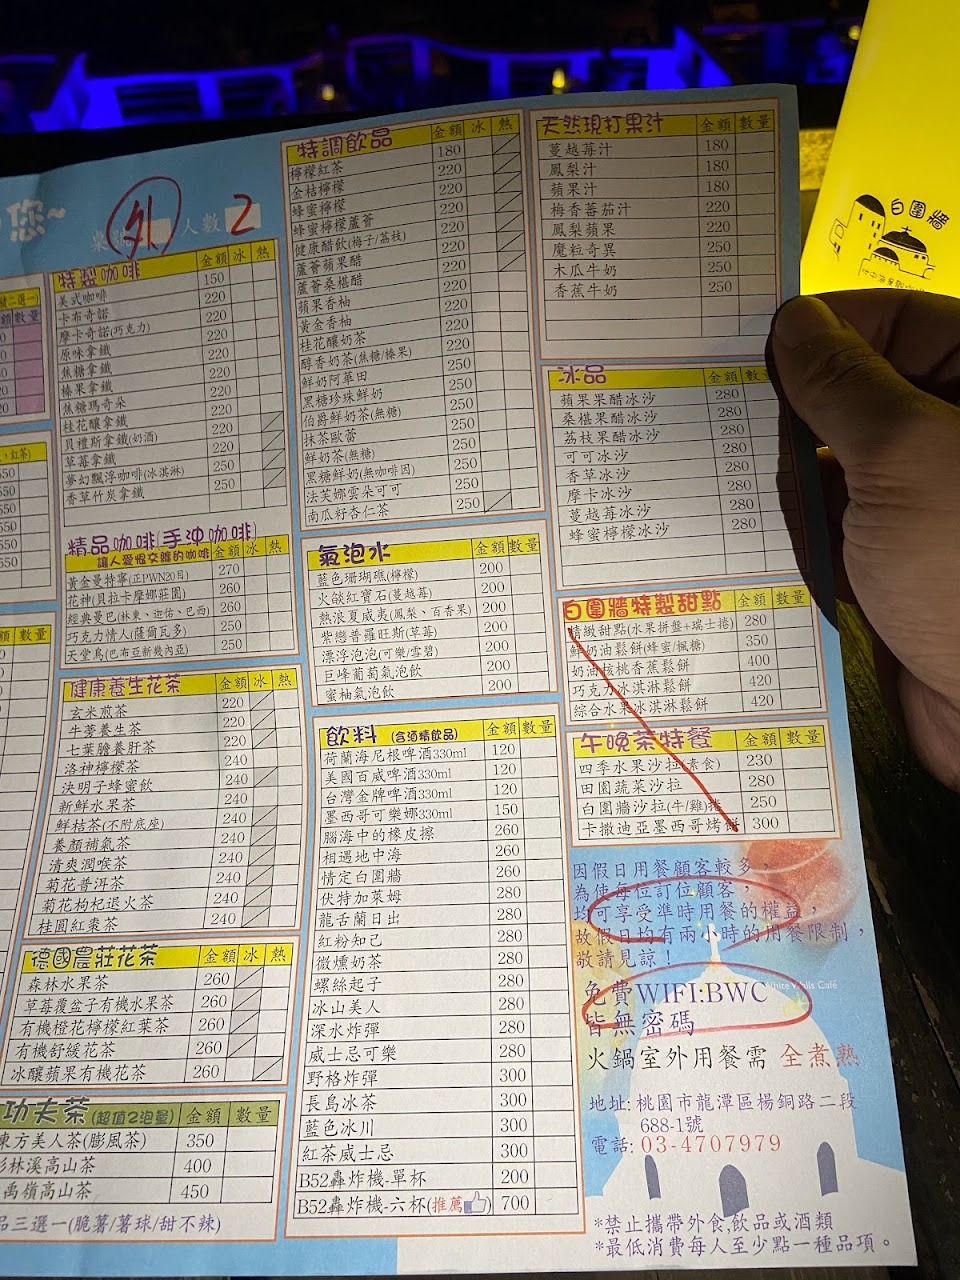 您~
外 人數 2
特製咖啡 金額 冰 熱
美式咖啡 150
卡布奇諾 220
摩卡奇諾(巧克力) 220
原味拿鐵 220
焦糖拿鐵 220
榛果拿鐵 220
焦糖瑪奇朵 220
桂花釀拿鐵 220
貝禮斯拿鐵(奶酒) 250
草莓拿鐵 250
夢幻飄浮咖啡(冰淇淋) 250
香草竹炭拿鐵 250
精品咖啡(手沖咖啡)
讓人愛恨交雜的咖啡 金額 冰 熱
黃金曼特寧(正PWN20目) 270
花神(貝拉卡摩娜莊園) 260
經典曼巴(林東、迦佑、巴西) 260
巧克力情人(薩爾瓦多) 250
天堂鳥(巴布亞新幾內亞) 250
健康養生花茶 金額 冰 熱
玄米煎茶 220
牛蒡養生茶 220
七葉膽養肝茶 220
洛神檸檬茶 240
決明子蜂蜜飲 240
新鮮水果茶 240
鮮桔茶(不附底座) 240
養顏補氣茶 240
清爽潤喉茶 240
菊花普洱茶 240
菊花枸杞退火茶 240
桂圓紅棗茶 240
德國農莊花茶 金額 冰 熱
森林水果茶 260
草莓覆盆子有機水果茶 260
有機橙花檸檬紅葉茶 260
有機舒緩花茶 260
冰釀蘋果有機花茶 260
功夫茶(超值2泡量) 金額 數量
東方美人茶(膨風茶) 350
杉林溪高山茶 400
禹嶺高山茶 450
品三選一(脆薯/薯球/甜不辣)
特調飲品 金額 冰 熱
檸檬紅茶 180
金桔檸檬 220
蜂蜜檸檬 220
蜂蜜檸檬蘆薈 220
健康醋飲(梅子/荔枝) 220
蘆薈蘋果醋 220
蘆薈桑椹醋 220
蘋果香柚 220
黃金香柚 220
桂花釀奶茶 220
醇香奶茶(焦糖/榛果) 220
鮮奶阿華田 250
黑糖珍珠鮮奶 250
伯爵鮮奶茶(無糖) 250
抹茶歐蕾 250
鮮奶茶(無糖) 250
黑糖鮮奶(無咖啡因) 250
法芙娜雲朵可可 250
南瓜籽杏仁茶 250
氣泡水 金額 數量
藍色珊瑚礁(檸檬) 200
火燄紅寶石(蔓越莓) 200
熱浪夏威夷(鳳梨、百香果) 200
紫戀普羅旺斯(草莓) 200
漂浮泡泡(可樂/雪碧) 200
巨峰葡萄氣泡飲 200
蜜柚氣泡飲 200
飲料 (含酒精飲品) 金額 數量
荷蘭海尼根啤酒330ml 120
美國百威啤酒330ml 120
台灣金牌啤酒330ml 120
墨西哥可樂娜330ml 150
腦海中的橡皮擦 260
相遇地中海 260
情定白圍牆 260
伏特加萊姆 280
龍舌蘭日出 280
紅粉知己 280
微燻奶茶 280
螺絲起子 280
冰山美人 280
深水炸彈 280
威士忌可樂 280
野格炸彈 300
長島冰茶 300
藍色冰川 300
紅茶威士忌 300
B52轟炸機-單杯 200
B52轟炸機-六杯(推薦) 700
天然現打果汁 金額 數量
蔓越莓汁 180
鳳梨汁 180
蘋果汁 180
梅香蕃茄汁 220
鳳梨蘋果 220
魔粒奇異 250
木瓜牛奶 250
香蕉牛奶 250
冰品 金額 數量
蘋果果醋冰沙 280
桑椹果醋冰沙 280
荔枝果醋冰沙 280
可可冰沙 280
香草冰沙 280
摩卡冰沙 280
蔓越莓冰沙 280
蜂蜜檸檬冰沙 280
白圍牆特製甜點 金額 數量
精緻甜點(水果拼盤+瑞士捲) 280
鮮奶油鬆餅(蜂蜜/楓糖) 350
奶油核桃香蕉鬆餅 400
巧克力冰淇淋鬆餅 420
綜合水果冰淇淋鬆餅 420
午晚茶特餐 金額 數量
四季水果沙拉(素食) 230
田園蔬菜沙拉 280
白圍牆沙拉(牛/雞)捲 250
卡撒迪亞墨西哥烤餅 300
因假日用餐顧客較多,
為使每位訂位顧客,
均可享受準時用餐的權益,
故假日均有兩小時的用餐限制,
敬請見諒!
White Walls Café
免費WIFI:BWC
皆無密碼
火鍋室外用餐需 全煮熟
地址: 桃園市龍潭區楊銅路二段
688-1號
電話: 03-4707979
*禁止攜帶外食,飲品或酒類
*最低消費每人至少點一種品項。
白圍牆